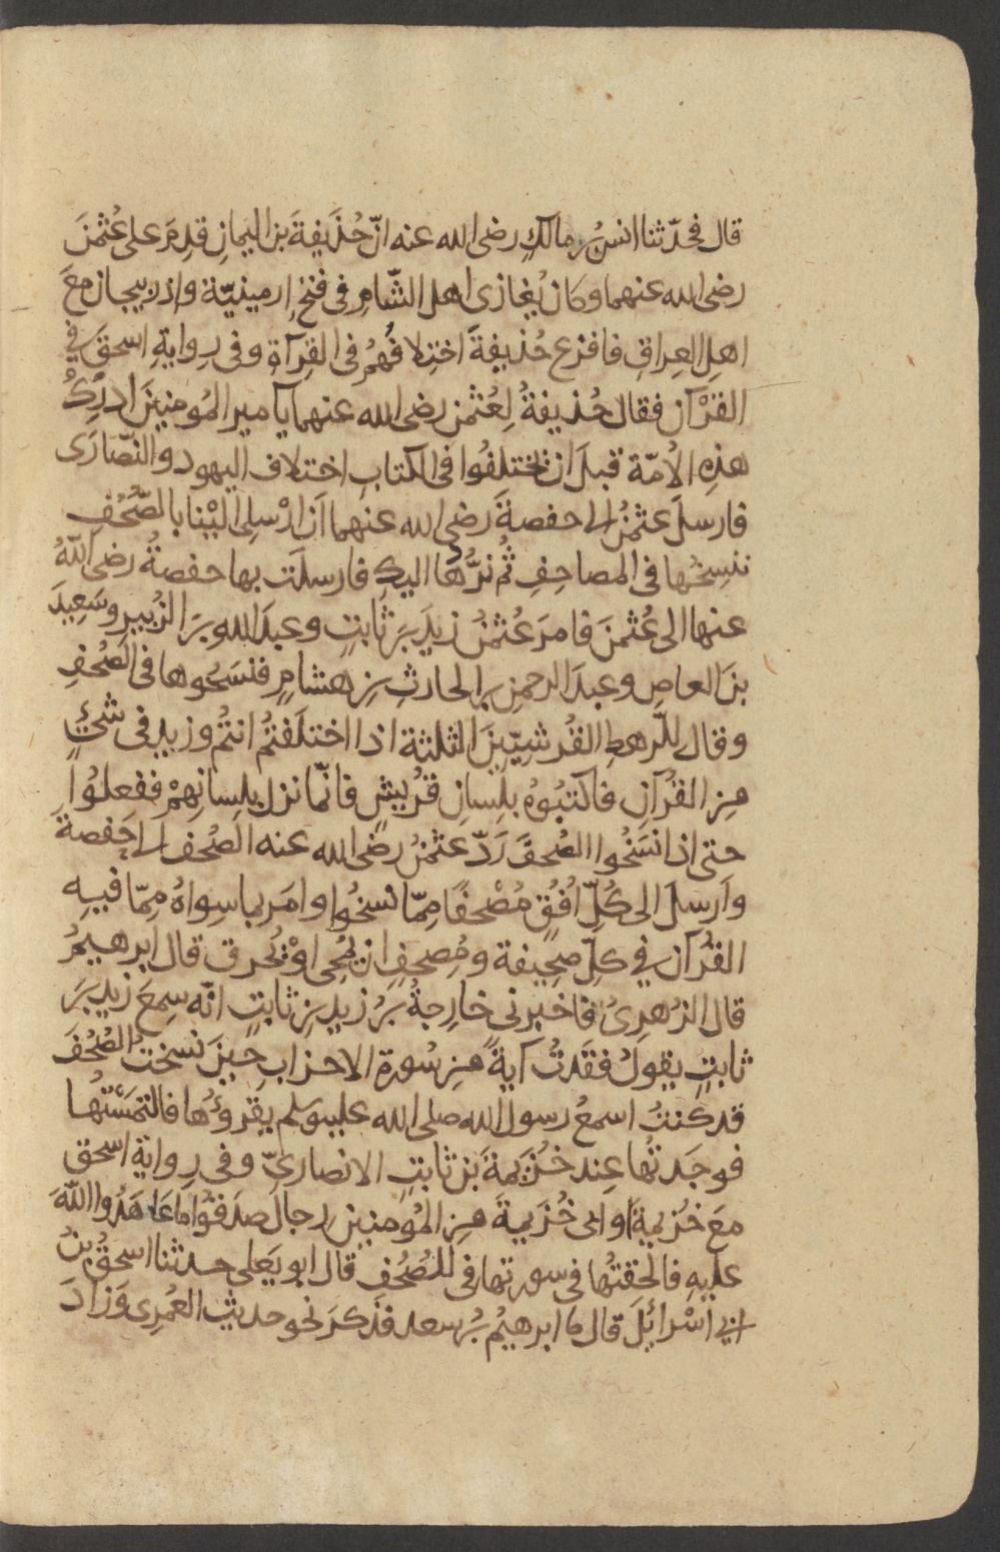 قال فحدّثنا انسُ بن مالكٍ رضى الله عنه انّ حُذَيفةَ بن اليمانِ قدِمَ على عُثمنَ
رضى الله عنهما وكانَ يُغازى اهل الشّامِ فى فتحِ ارمينيّة واذربيجان معَ
اهلِ العِراقِ فافزع حُذيفةَ اختِلافُهُمْ فى القِرآةِ وفى رِوايةِ اسحقَ فى
القرْآن فقال حُذيفةُ لِعُثمن رضى الله عنهما يآ امير المُومنينَ ادرِكْ
هذِهِ الاُمّة قبلَ ان تختلفُوا فى الكتابِ اختلاف اليهود والنّصارَى
فارسلَ عثمنُ الى حفصةَ رضى الله عنهما اَن ارْسلِى اليْنا بالصُّحُفِ
ننسِخُها فى المصاحِفِ ثُم نرُّدهَا اليكِ فارسلَت بها حفصةُ رضى اللّهُ
عنها الى عُثمنَ فامرَ عُثمنُ زيدَ بنَ ثابتٍ وعبدَ اللهِ بنَ الزُّبيرِ وسَعِيدَ
بنَ العاصِ وعبدَ الرحمنِ بن الحارثِ بنِ هشامٍ فنسَخُوها فى الصُحُفِ
وقال للّرهطِ القُرشيّينَ الثلثة اذا اختلَفتُم انتُم وزيد فى شئٍ
مِن القُرآنِ فاكتبُوهُ بلِسانِ قرُيشٍ فانّما نزل بلِسانِهِمْ ففعلُوا
حتى اذا نسَخُوا الصُحفَ رَدّ عثمنُ رضى الله عنه الصُحف الى حفصةَ
وارسلَ الى كُلّ اُفُقٍ مُصْحفًا مِمّا نسخُوا وامَر بما سِواهُ مِمّا فيهِ
القُرآن فى كلّ صحِيفة ومُصحفٍ ان يُمحى اوْ يُحرق قال ابرهيمُ
قال الزُهرِىُ فاخبرنى خارِجةُ بنُ زيدِ بنِ ثابتٍ انّه سمِعَ زيد بنَ
ثابتٍ يقولُ فقَدتُ آيةً مِن سُورةِ الاحزابِ حِينَ نسختُ الصُحُفَ
قد كنتُ اسمعُ رسول الله صلى الله عليه وسلم يقروُها فالتمسْتُها
فوجَدتُها عِند خُزَيمةَ بن ثابتٍ الانصارىّ وفى رِوايةِ اسحق
معَ خزيمةَ او ابى خُزَيمةَ مِن المُومنين رِجال صدَقُوا ما عَاهَدُوا اللّهَ
عليهِ فالحقتُها فى سورتها فى المُصْحَف قال ابو يَعلى حدثنا اسحقُ بنُ
ابى اسْرائِلَ قال نا ابرهيُم بُن سعد فذكرَ نحو حديث العُمرِى وَزادَ